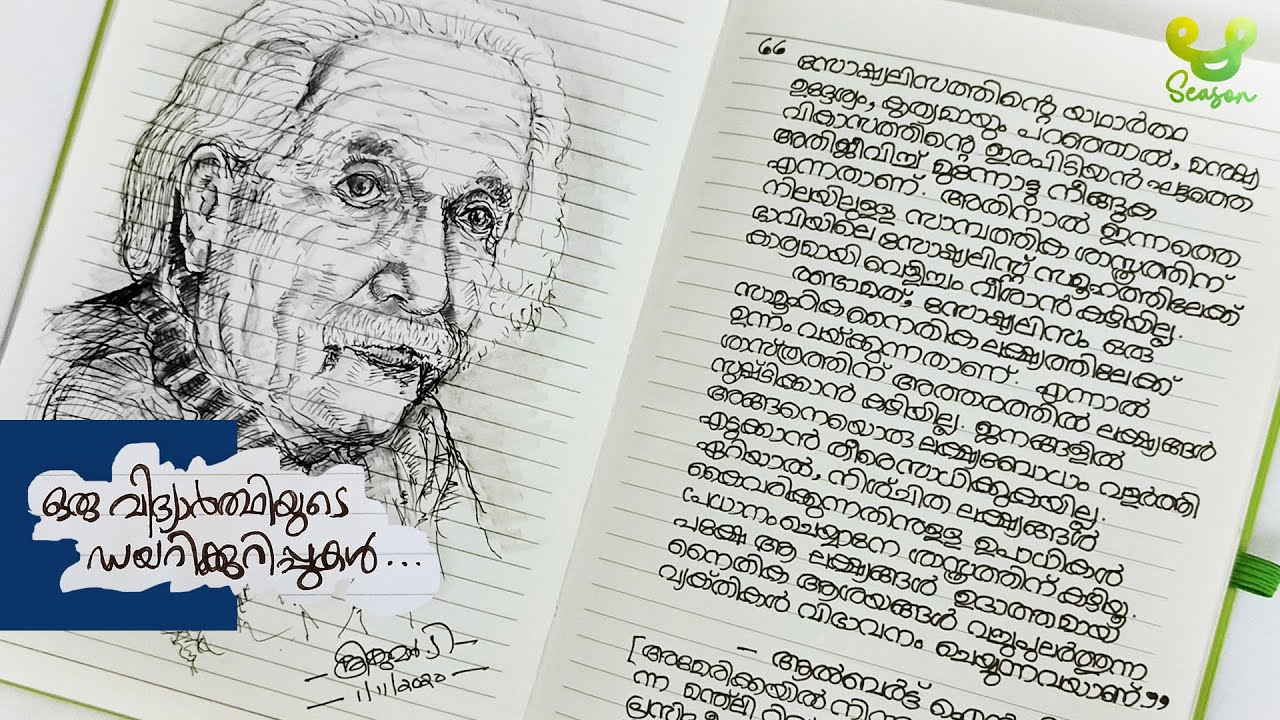 Season
“ സോഷ്യലിസത്തിന്റെ യഥാർത്ഥ
ഉദ്ദേശ്യം, കൃത്യമായും പറഞ്ഞാൽ, മനുഷ്യ
വികാസത്തിന്റെ ഇരപിടിയൻ ഘട്ടത്തെ
അതിജീവിച്ച് മുന്നോട്ടു നീങ്ങുക
എന്നതാണ്. അതിനാൽ ഇന്നത്തെ
നിലയിലുള്ള സാമ്പത്തിക ശാസ്ത്രത്തിന്
ഭാവിയിലെ സോഷ്യലിസ്റ്റ് സമൂഹത്തിലേക്ക്
കാര്യമായി വെളിച്ചം വീശാൻ കഴിയില്ല.
രണ്ടാമത്, സോഷ്യലിസം ഒരു
സാമൂഹിക നൈതിക ലക്ഷ്യത്തിലേക്ക്
ഉന്നം വയ്ക്കുന്നതാണ്. എന്നാൽ
ശാസ്ത്രത്തിന് അത്തരത്തിൽ ലക്ഷ്യങ്ങൾ
സൃഷ്ടിക്കാൻ കഴിയില്ല. ജനങ്ങളിൽ
അങ്ങനെയൊരു ലക്ഷ്യബോധം വളർത്തി
എടുക്കാൻ തീരെ സാധിക്കുകയില്ല.
ഏറിയാൽ, നിശ്ചിത ലക്ഷ്യങ്ങൾ
കൈവരിക്കുന്നതിനുള്ള ഉപാധികൾ
പ്രധാനം ചെയ്യാനേ ശാസ്ത്രത്തിന് കഴിയൂ.
പക്ഷേ ആ ലക്ഷ്യങ്ങൾ ഉദാത്തമായ്
നൈതിക ആശയങ്ങൾ വച്ചുപുലർത്തുന്ന
വ്യക്തികൾ വിഭാവനം ചെയ്യുന്നവയാണ്.”
– ആൽബർട്ട്
[ അമേരിക്കയിൽ നിന്ന
ന്ന മന്ത്‌ലി
ഒരു വിദ്യാർത്ഥിയുടെ
ഡയറിക്കുറിപ്പുകൾ...
11/11/2020